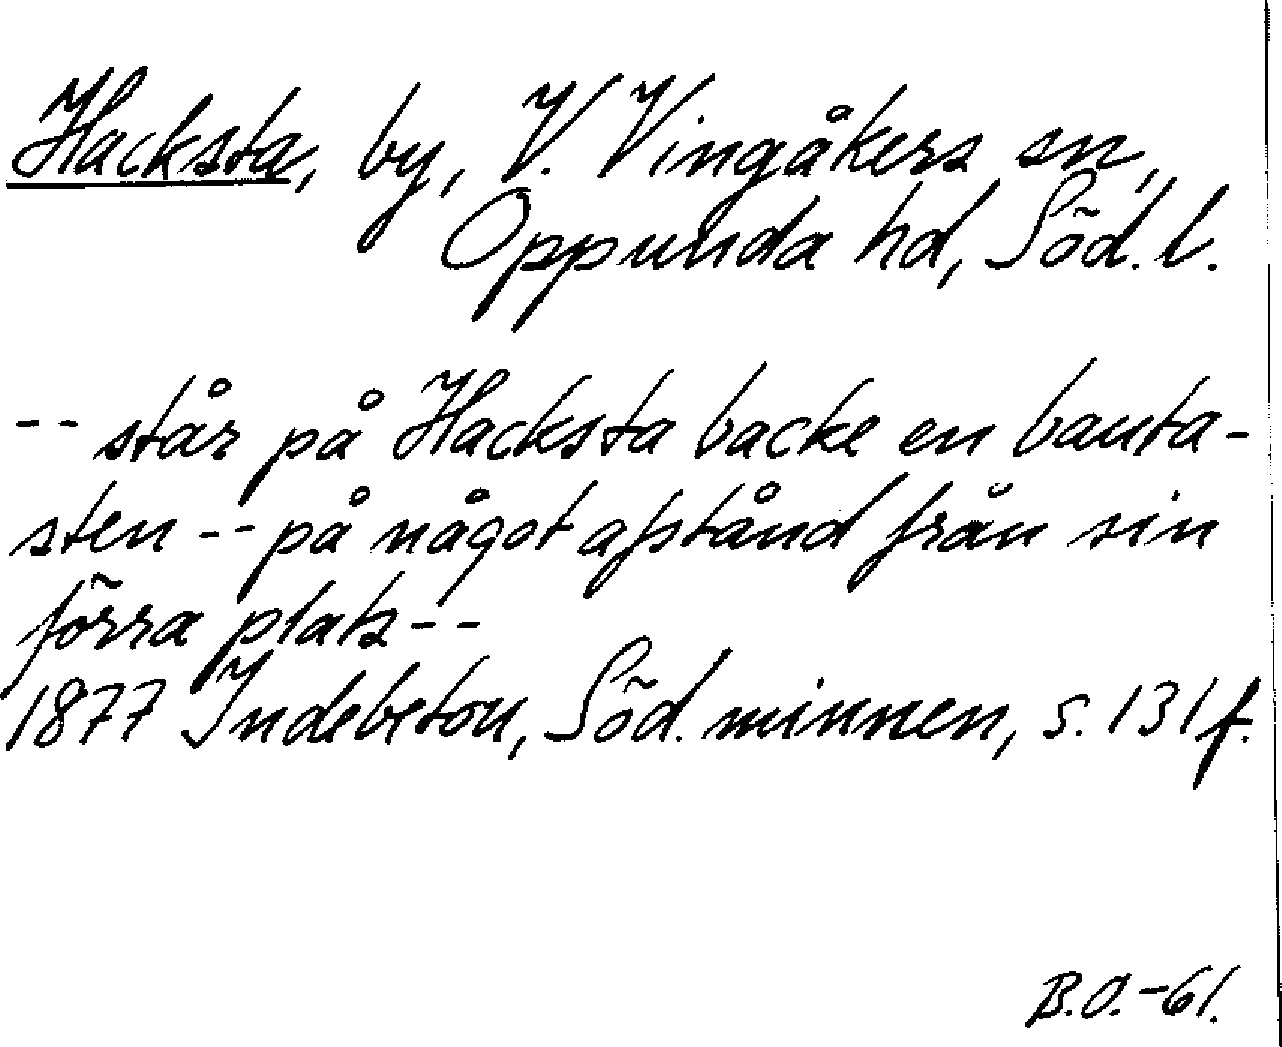 Hacksta, by, V. Vingåkers sn,
Oppunda hd, Söd. l.
-- står på Hacksta backe en bauta-
sten -- på något afstånd från sin
förra plats --
1877 Indebetou, Söd. minnen, s. 131 f.
B.O.-61.